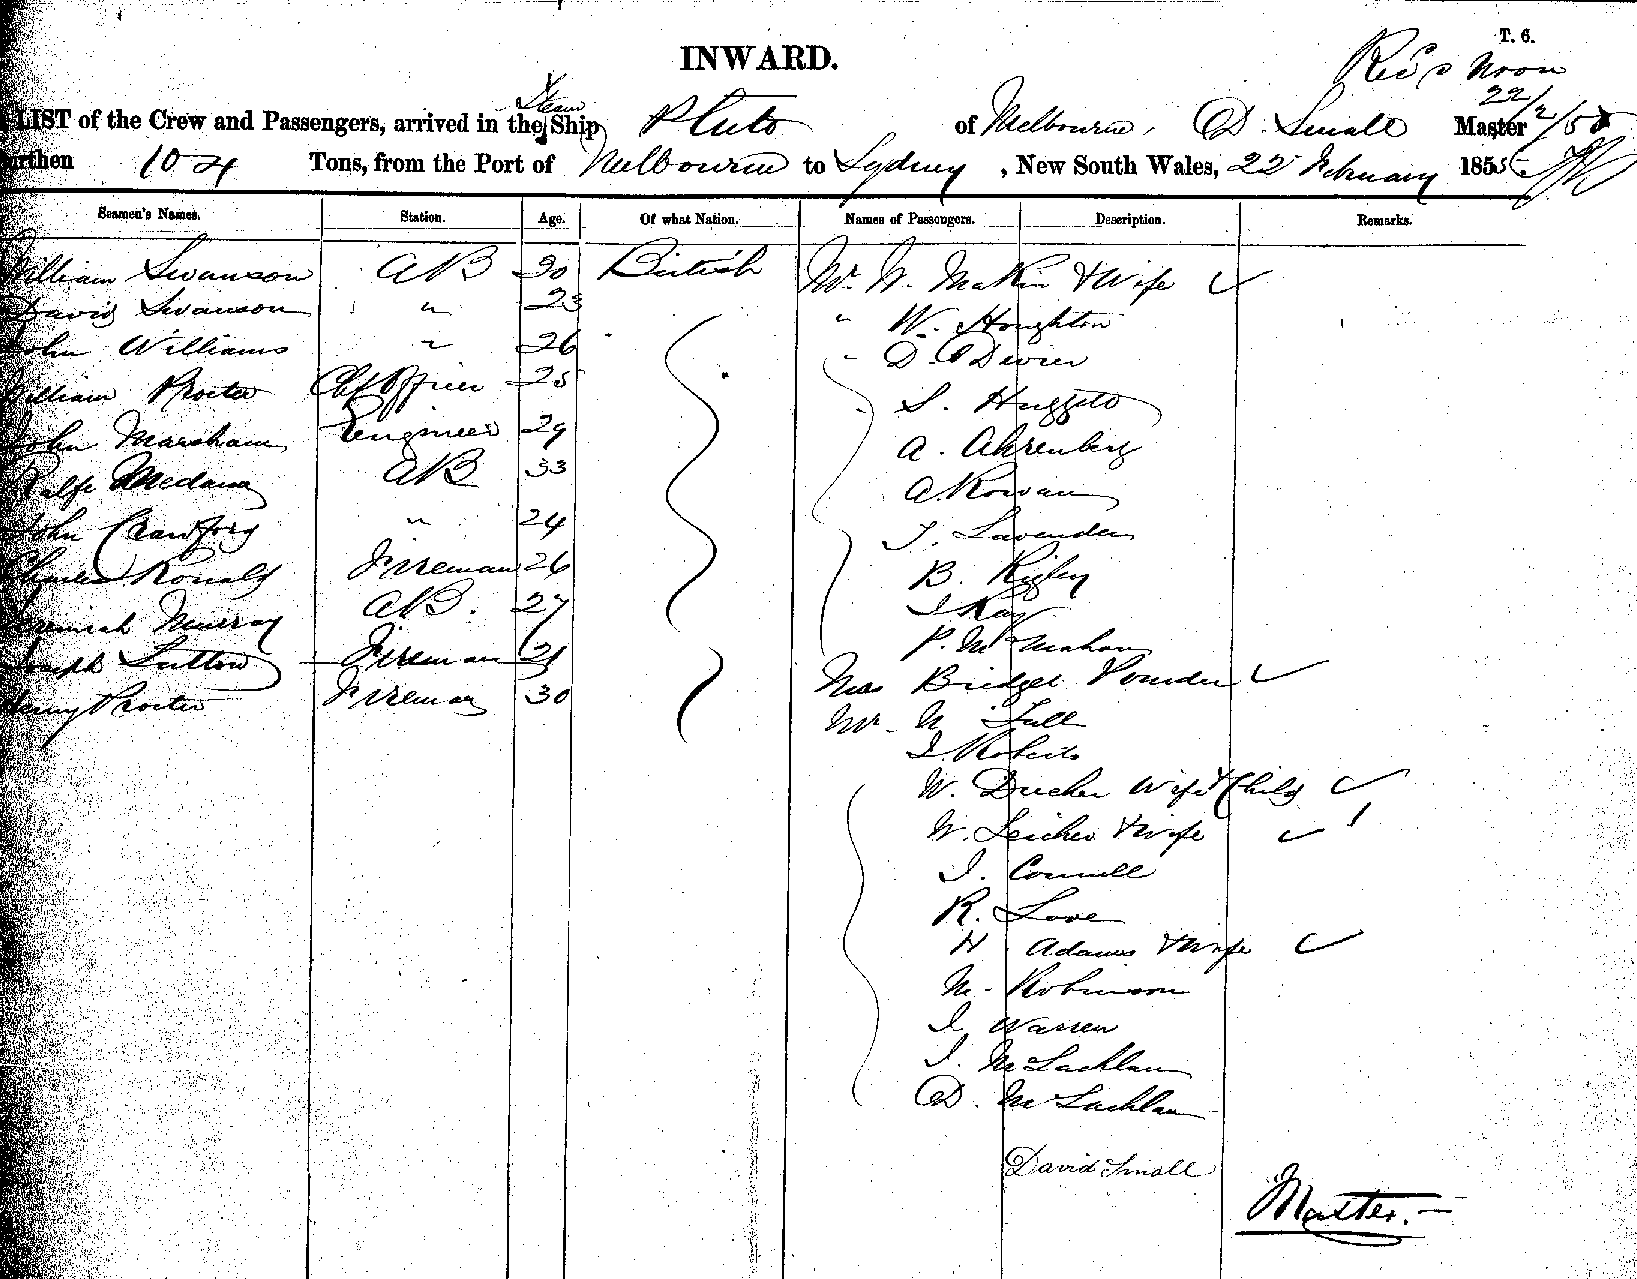 T. 6.
INWARD.
Rec'd Noon
22/2/55
LIST of the Crew and Passengers, arrived in the Steam Ship Pluto of Melbourne, D. Small Master
urthen 104 Tons, from the Port of Melbourne to Sydney, New South Wales, 22 February 1855
Seamen's Names. Station. Age. Of what Nation. Names of Passengers. Description. Remarks.
William Swanson AB 30 British Mr. W. Makin & Wife ✓
David Swanson " 23 " W. Houghton
John Williams " 26 " D. O Divier
William Procter Chf Officer 25 S. Huggett
John Marsham Engineer 29 A. Ahrenberg
Ralfe Medana AB 33 A Rowan
John Crawford " 24 J. Lavender
Charles Ronald Fireman 26 B. Rigley
Jeremiah Murray AB. 27 J Kay
Joseph Sutton Fireman 21 P. McMahon
Henry Procter Fireman 30 Mrs Bridget ✓
Mr. N Tull
J. Roberts
W. Ducher Wife & Child ✓
W. Leicher & Wife ✓
J. Connell
R. Love
H Adams & Wife ✓
M. Robinson
J. Warren
J. McLachlan
D. McLachlan
David Small
Master.